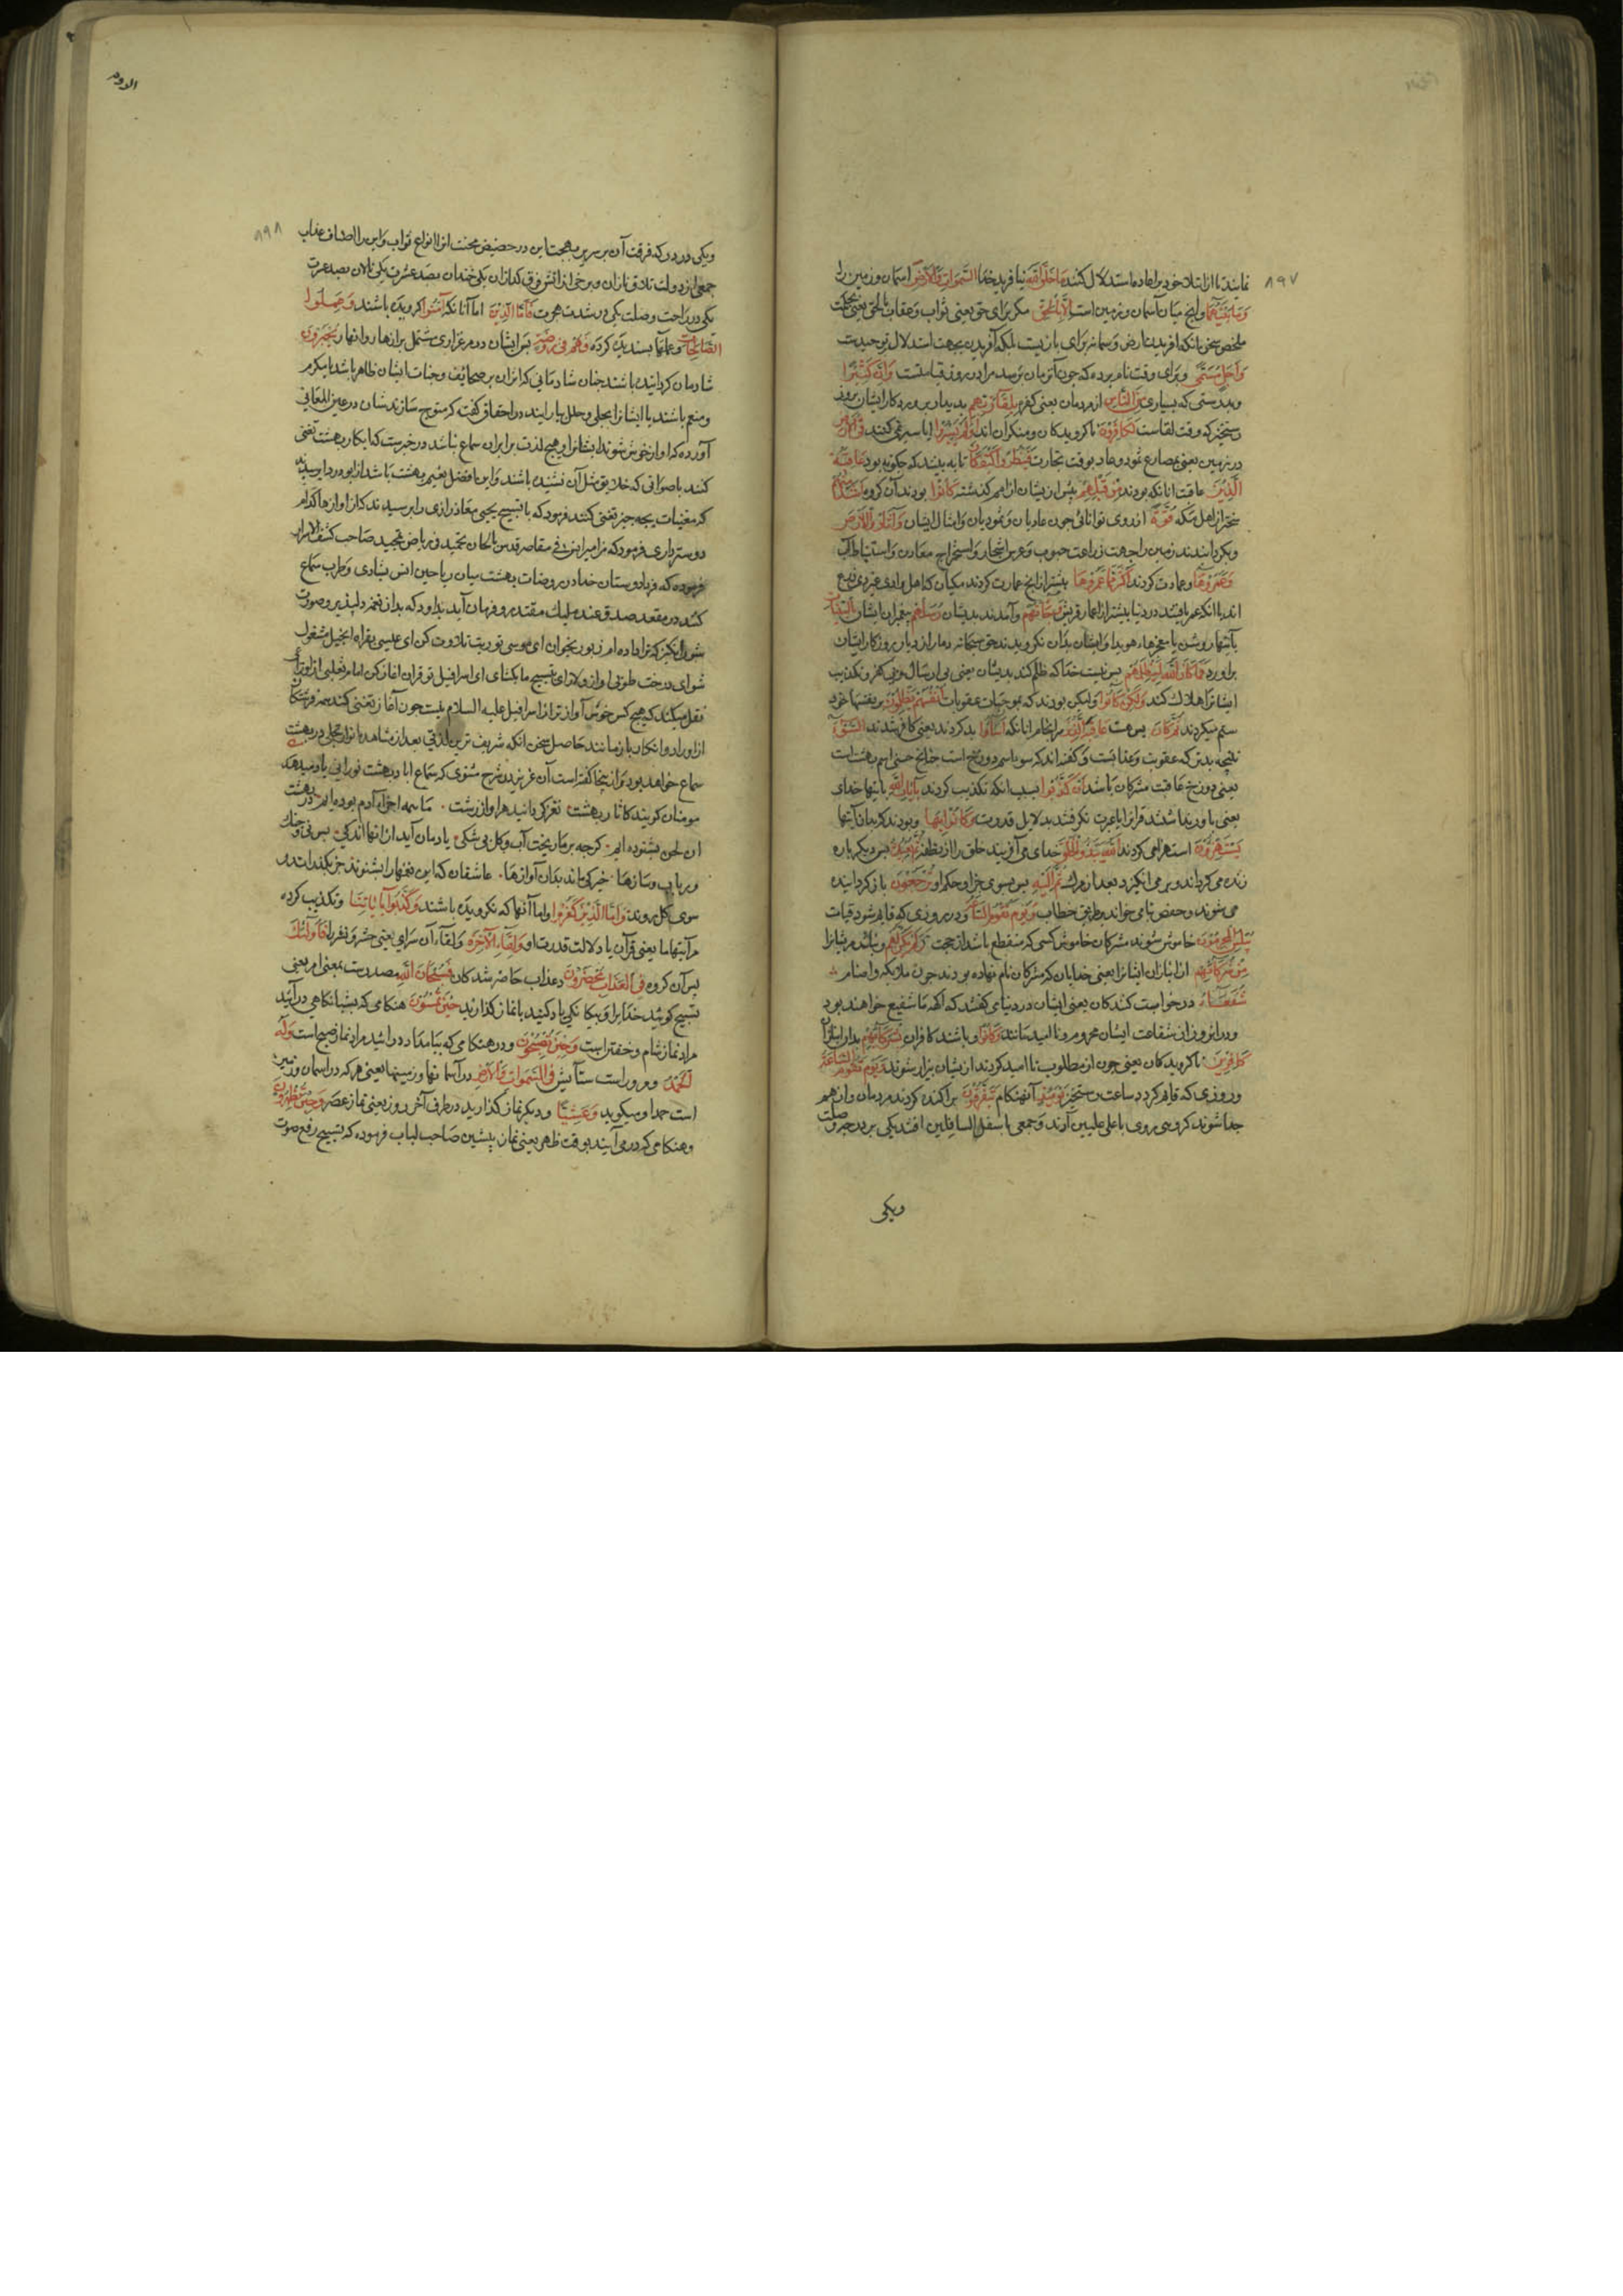 ۸۹۷
ما خلق الله نیافرید خدا السموات والارض آسمان و زمین را
وما بینهما وانچه میان آسمان و زمین است الا بالحق مکر برای حق یعنی ثواب و عقاب
ملخص سخن آنکه آفریدن ارض و سما نه برای بازیست بلکه آفریدن بجهت استدلال توحیدست
واجل مسمی وبرای وقت نام برده که چون آن زمان برسد مراد روز قیامتست وان کثیرا
وبدرستی که بسیاری من الناس از مردمان یعنی کفره بلقاء ربهم بدیدار پروردکار ایشان بروز
رستخیز که وقت لقاست لکافرون ناکرویدکان و منکران اند اولم یسیروا ایا سیر نمی کنند فی الارض
در زمین یعنی بمصارع ثمود و عاد بوقت تجارت فینظروا کیف کان تا به بینند که چکونه بود عاقبة
الذین عاقبت آنانکه بودند من قبلهم پیش از ایشان از امم کذشته کانوا بودند آن کروه اشد منهم
سختر از اهل مکه قوة از روی توانائی چون عادیان و ثمودیان و امثال ایشان واثاروا الارض
وبکردانیدند زمین را جهت زراعت حبوب و غرس اشجار و استخراج معادن و استنباط آب
وعمروها وعمارت کردند اکثر مما عمروها بیشتر از انچه عمارت کردند مکیان که اهل وادی غیر ذی زرع
اند با آنکه عمر یافتند در دنیا بیشتر از اعمار قریش وجاءتهم وآمدند بدیشان رسلهم پیغمبران ایشان بالبینات
بآیتهای روشن یا معجزهای هویدا و ایشان بدان نکرویدند حق سبحانه دمار از دیار روزکار ایشان
براورد فما کان الله لیظلمهم پس نیست خدا که ظلم کند بدیشان یعنی بی ارسال و بی کفر و تکذیب
ایشانرا هلاک کند ولکن کانوا ولیکن بودند که بموجبات عقوبات انفسهم یظلمون بر نفسهای خود
ستم میکردند ثم کان پس هست عاقبة الذین سرانجام آنانکه اساؤا بد کردند یعنی کافر شدند السوآی
نتیجه بد که عقوبت و عذابست و کفته اند که سوءا اسم دوزخ است چنانچه حسنی اسم بهشت است
یعنی دوزخ عاقبت مشرکان باشد ان کذبوا بسبب آنکه تکذیب کردند بآیات الله بآیتهای خدای
یعنی باور نداشتند قرانرا یا عبرت نکرفتند بدلایل قدرت وکانوا بها وبودند که بدان آیتها
یستهزؤن استهزا می کردند الله یبدؤ الخلق خدای می آفریند خلق را از نطفه ثم یعیده پس دیکرباره
زنده می کرداند و بر می انکیزد بعد از مرک ثم الیه پس بسوی جزا و حکم او ترجعون باز کردانیده
می شوند و حفص بتا می خواند بطریق خطاب ویوم تقوم الساعة ودر روزی که قایم شود قیامت
یبلس المجرمون خاموش شوند مشرکان خاموشی کسی که منقطع باشد از حجت ولم یکن لهم ونباشد مریشانرا
من شرکائهم از انبازان ایشان یعنی خدایان که مشرکان نام نهاده بودند چون ملایکه و اصنام
شفعاؤا درخواست کنندکان یعنی ایشان در دنیا می کفتند که آلهه ما شفیع خواهند بود
ودر آنروز از شفاعت ایشان محروم و ناامید مانند وکانوا وباشند کافران بشرکائهم بدان انبازان
کافرین ناکرویدکان یعنی چون از مطلوب ناامید کردند از ایشان بیزار شوند ویوم تقوم الساعة
وروزی که قایم کردد ساعت رستخیز یومئذ آنهنکام یتفرقون پراکنده کردند مردمان و از هم
جدا شوند کروهی روی باعلی علیین آرند و جمعی باسفل السافلین افتند یکی بر درجه وصلت
ویکی
۸۹۸
ویکی در درکه فرقت آن بر سریر بهجت این در حضیض محنت آنرا انواع ثواب و این را اصناف عذاب
جمعی از دولت تلاق نازان و برخی از آتش فراق کدازان یکی خندان بصد عشرت یکی نالان بصد عبرت
یکی در راحت وصلت یکی در شدت هجرت فاما الذین اما آنانکه آمنوا کرویده باشند وعملوا
الصالحات وعملهای پسندیده کرده فهم فی روضة پس ایشان در مرغزاری مشتمل بر ازهار و انهار یحبرون
شادمان کردانیده باشند چنان شادمانی که اثر آن بر صحایف وجنات ایشان ظاهر باشد یا مکرم
ومنعم باشند یا ایشانرا بحلی و حلل بیارایند در احقاف کفت که متوج سازندشان در عین المعانی
آورده که آواز خوش شنوند ایشانرا و هیچ لذت برابر آن سماع نباشد در خبرست که ابکار بهشت تغنی
کنند باصواتی که خلایق مثل آن نشنیده باشند و این افضل نعیم بهشت باشد از ابودردا پرسیدند
که مغنیات بچه چیز تغنی کنند فرمود که بالتسبیح یحیی معاذ رازی را پرسیدند که از آوازها کدام
دوستر داری فرمود که مزامیر انس فی مقاصر قدس بالحان تحمید فی ریاض تمجید صاحب کشف الاسرار
فرموده که فردا دوستان خدا در روضات بهشت میان ریاحین انس بشادی و طرب سماع
کنند در مقعد صدق عند ملیک مقتدر و فرمان آید بداود که بدان نغمه دلپذیر و صوت
شورانکیز که ترا داده ام زبور بخوان ای موسی توریت تلاوت کن ای عیسی بقراءة انجیل مشغول
شو ای درخت طوبی آواز دلارای بتسبیح ما بکشای ای اسرافیل تو قران آغاز کن امام ثعلبی از اوزاعی
نقل میکند که هیچ کس خوش آوازتر از اسرافیل علیه السلام نیست چون آغاز تغنی کند همه فرشتکان
از اوراد و اذکار باز مانند حاصل سخن آنکه شریف ترین لذتی بعد از مشاهده انوار تجلی در بهشت
سماع خواهد بود و از اینجا کفته است آن عزیز در شرح مثنوی که سماع آنا در بهشت نورانی یاد میدهد
مومنان کویند کآثار بهشت نغز کردانید هر آواز زشت ما همه اجزاء آدم بوده ایم در بهشت
آن لحن بشنوده ایم کرچه بر ما ریخت آب و کل شکی یادمان آید از آنها اندکی پس نی و چنک
ورباب و سازها چیزکی ماند بدان آوازها عاشقان کاین نغمها را بشنوند جزو بکذارند و
سوی کل روند واما الذین کفروا واما آنها که نکرویده باشند وکذبوا بآیاتنا وتکذیب کرده
مر آیتهای ما یعنی قرآن یا دلالت قدرت او ولقاء الآخرة ولقاء آن سرای یعنی حشر و نشر را فاولئک
پس آن کروه فی العذاب محضرون در عذاب حاضر شدکان فسبحان الله مصدرست بمعنی امر یعنی
تسبیح کوئید خدایرا و بپاکی یاد کنید یا نماز کذارید حین تمسون هنکامی که بشبانکاه درآئید
مراد نماز شام و خفتن است وحین تصبحون ودر هنکامی که بامداد درآئید مراد نماز صبح است وله
الحمد ومروراست ستایش فی السموات والارض در آسمانها و زمینها یعنی هر که در آسمان و زمین
است حمد او میکوید وعشیا ودیکر نماز کذارید در طرف آخر روز یعنی نماز عصر وحین تظهرون
وهنکامی که در می آیید بوقت ظهر یعنی نماز پیشین صاحب لباب فرموده که تسبیح رفع صوت